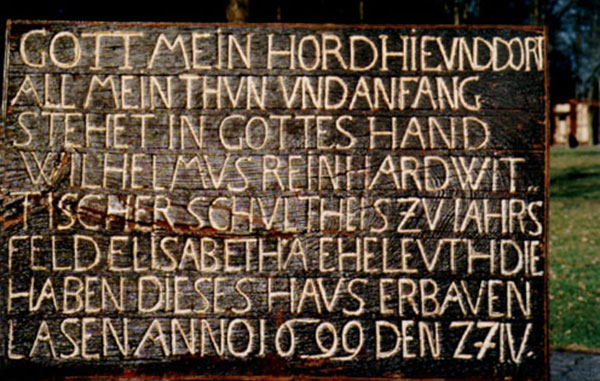 GOTT MEIN HORD HIE VND DORT
ALL MEIN THVN VND ANFANG
STEHET IN GOTTES HAND
WILHELMVS REINHARD WIT..
TISCHER SCHVLTHEIS ZV IAHRS
FELD ELISABETHA EHELEVTH DIE
HABEN DIESES HAVS ERBAVEN
LASEN ANNO 1699 DEN Z7 IV.